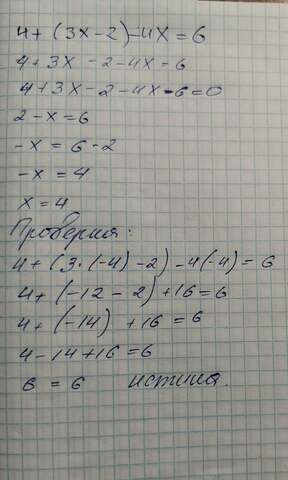 4+(3x-2)-4x=6
4+3x-2-4x=6
4+3x-2-4x-6=0
2-x=6
-x=6-2
-x=4
x=4
Проверка:
4+(3·(-4)-2)-4(-4)=6
4+(-12-2)+16=6
4+(-14)+16=6
4-14+16=6
6=6 истина.